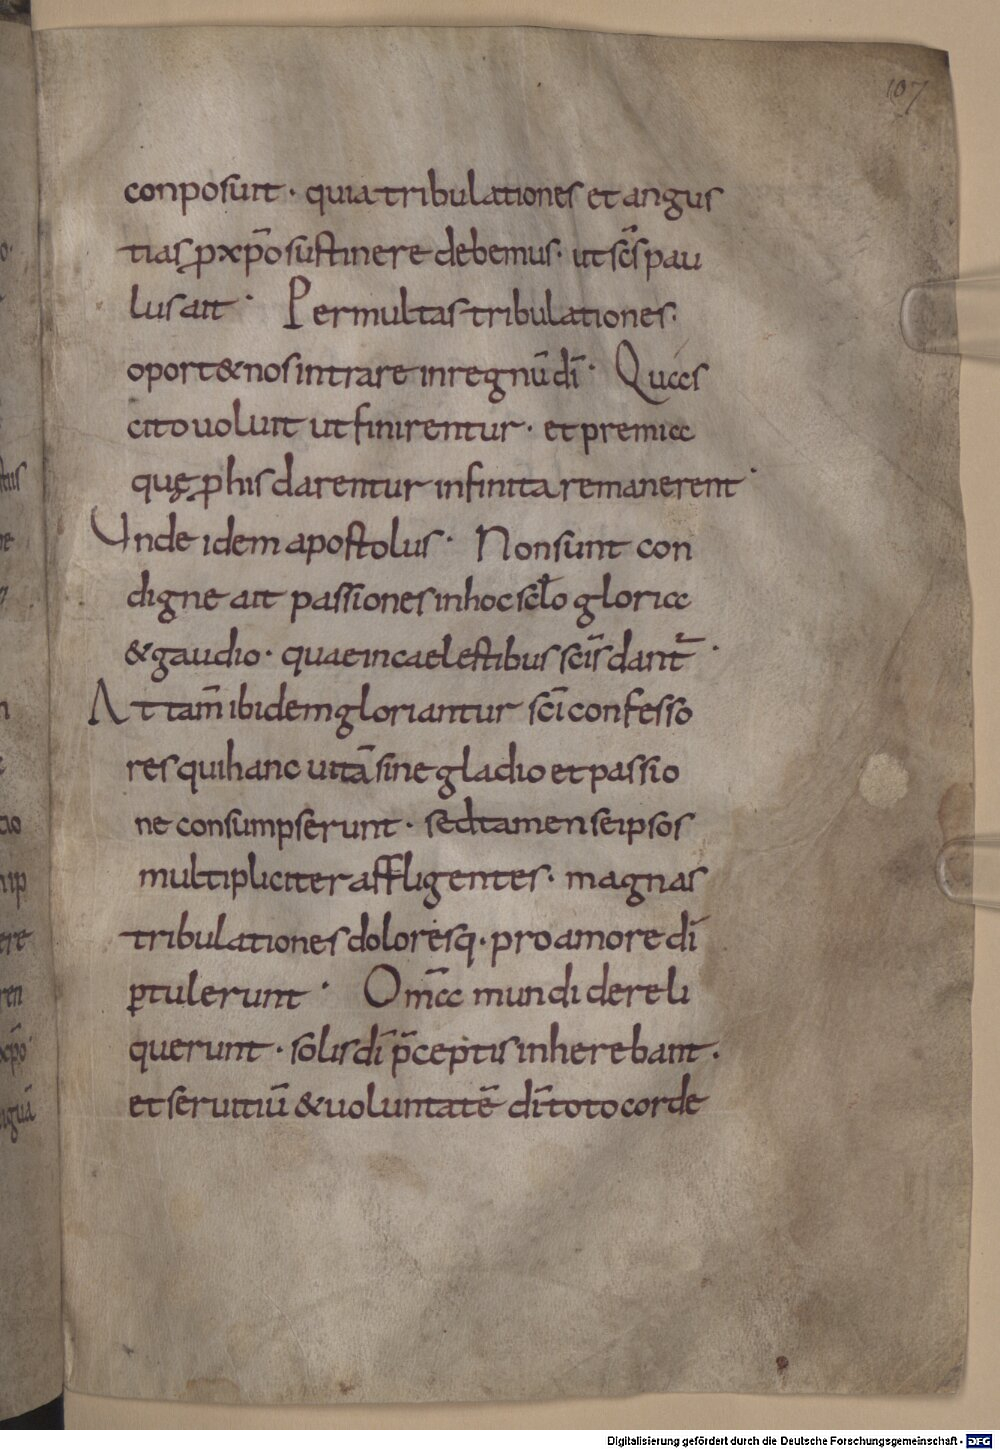 107
conposuit · quia tribulationes et angus
tias p xp̄o sustinere debemus · ut sc̄s pau
lus ait · Per multas tribulationes ·
oport& nos intrare in regnū dī · Quas
cito uoluit ut finirentur · et premia
quę p his darentur infinita remanerent ·
Unde idem apostolus · Non sunt con
digne ait passiones in hoc sc̄lo gloriae
& gaudio · quae in caelestibus sc̄is dant̄ ·
Attam̄ ibidem gloriantur sc̄i confesso
res qui hanc uitā sine gladio et passio
ne consumpserunt · sed tamen se ipsos
multipliciter affligentes · magnas
tribulationes doloresq · pro amore dī
ptulerunt · Om̄a mundi dereli
querunt · solis dī p̄ceptis inherebant ·
et seruitiū & uoluntatē dī toto corde
Digitalisierung gefördert durch die Deutsche Forschungsgemeinschaft - DFG